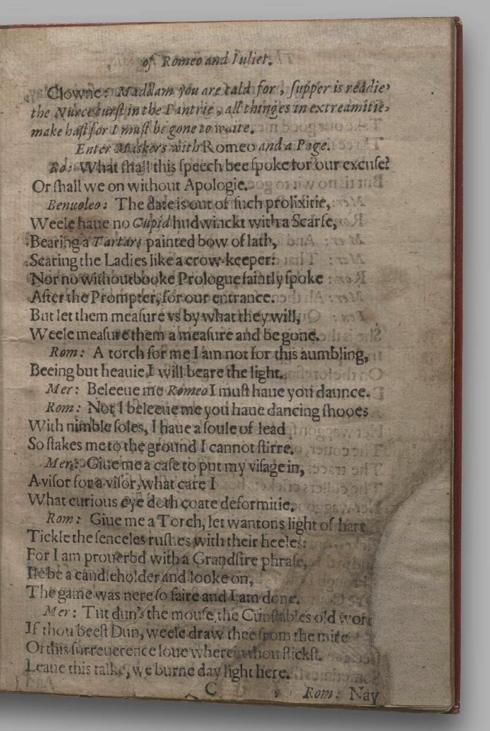 of Romeo and Iuliet.
Clowne: Maddam you are cald for, supper is readie,
the Nurce curst in the Pantrie, all thinges in extreamitie,
make hast for I must be gone to waite.
Enter Maskers with Romeo and a Page.
Ro: What shall this speech bee spoke for our excuse?
Or shall we on without Apologie.
Benuoleo: The date is out of such prolixitie,
Weele haue no Cupid hudwinckt with a Scarfe,
Bearing a Tartars painted bow of lath,
Scaring the Ladies like a crow-keeper:
Nor no withoutbooke Prologue faintly spoke
After the Prompter, for our entrance.
But let them measure vs by what they will,
Weele measure them a measure and be gone.
Rom: A torch for me I am not for this aumbling,
Beeing but heauie I will beare the light.
Mer: Beleeue me Romeo I must haue you daunce.
Rom: Not I beleeue me you haue dancing shooes
With nimble soles, I haue a soule of lead
So stakes me to the ground I cannot stirre.
Mer: Giue me a case to put my visage in,
A visor for a visor, what care I
What curious eye doth coate deformitie.
Rom: Giue me a Torch, let wantons light of hart
Tickle the senceles rushes with their heeles:
For I am prouerbd with a Grandsire phrase,
Ile be a candleholder and looke on,
The game was nere so faire and I am done.
Mer: Tut dun's the mouse the Cunstables old word
If thou beest Dun, weele draw thee from the mire
Of this surreuerence loue wherein thou stickst.
Leaue this talke, we burne day light here.
C
Rom: Nay